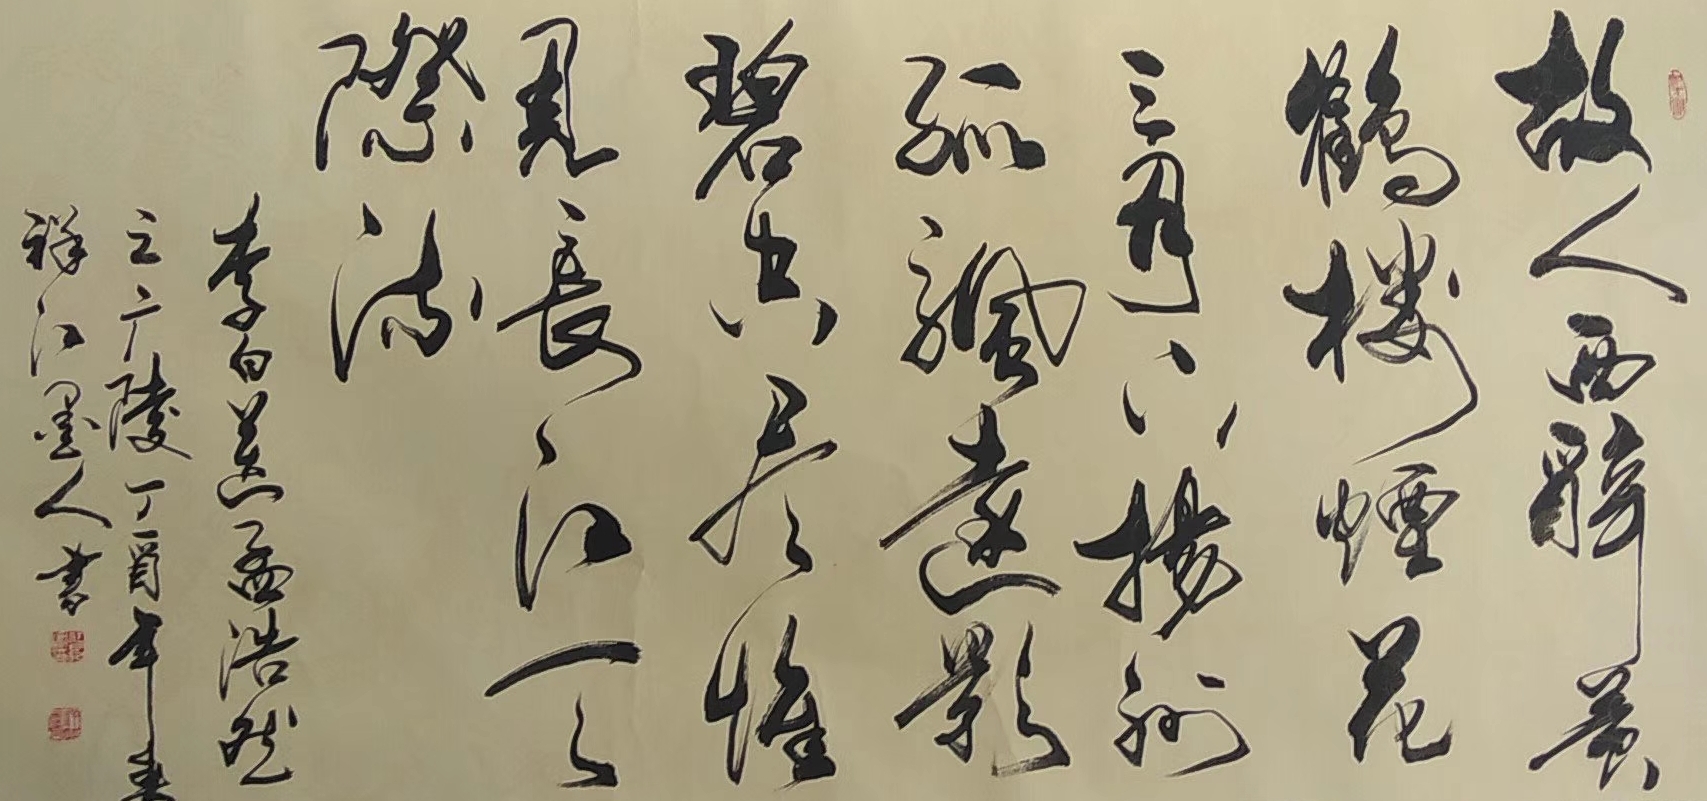 故人西辭黄
鶴樓煙花
三月下揚州
孤颿遠影
碧空尽惟
見長江天
際流
李白送孟浩然
之广陵丁酉年春
祥江墨人書